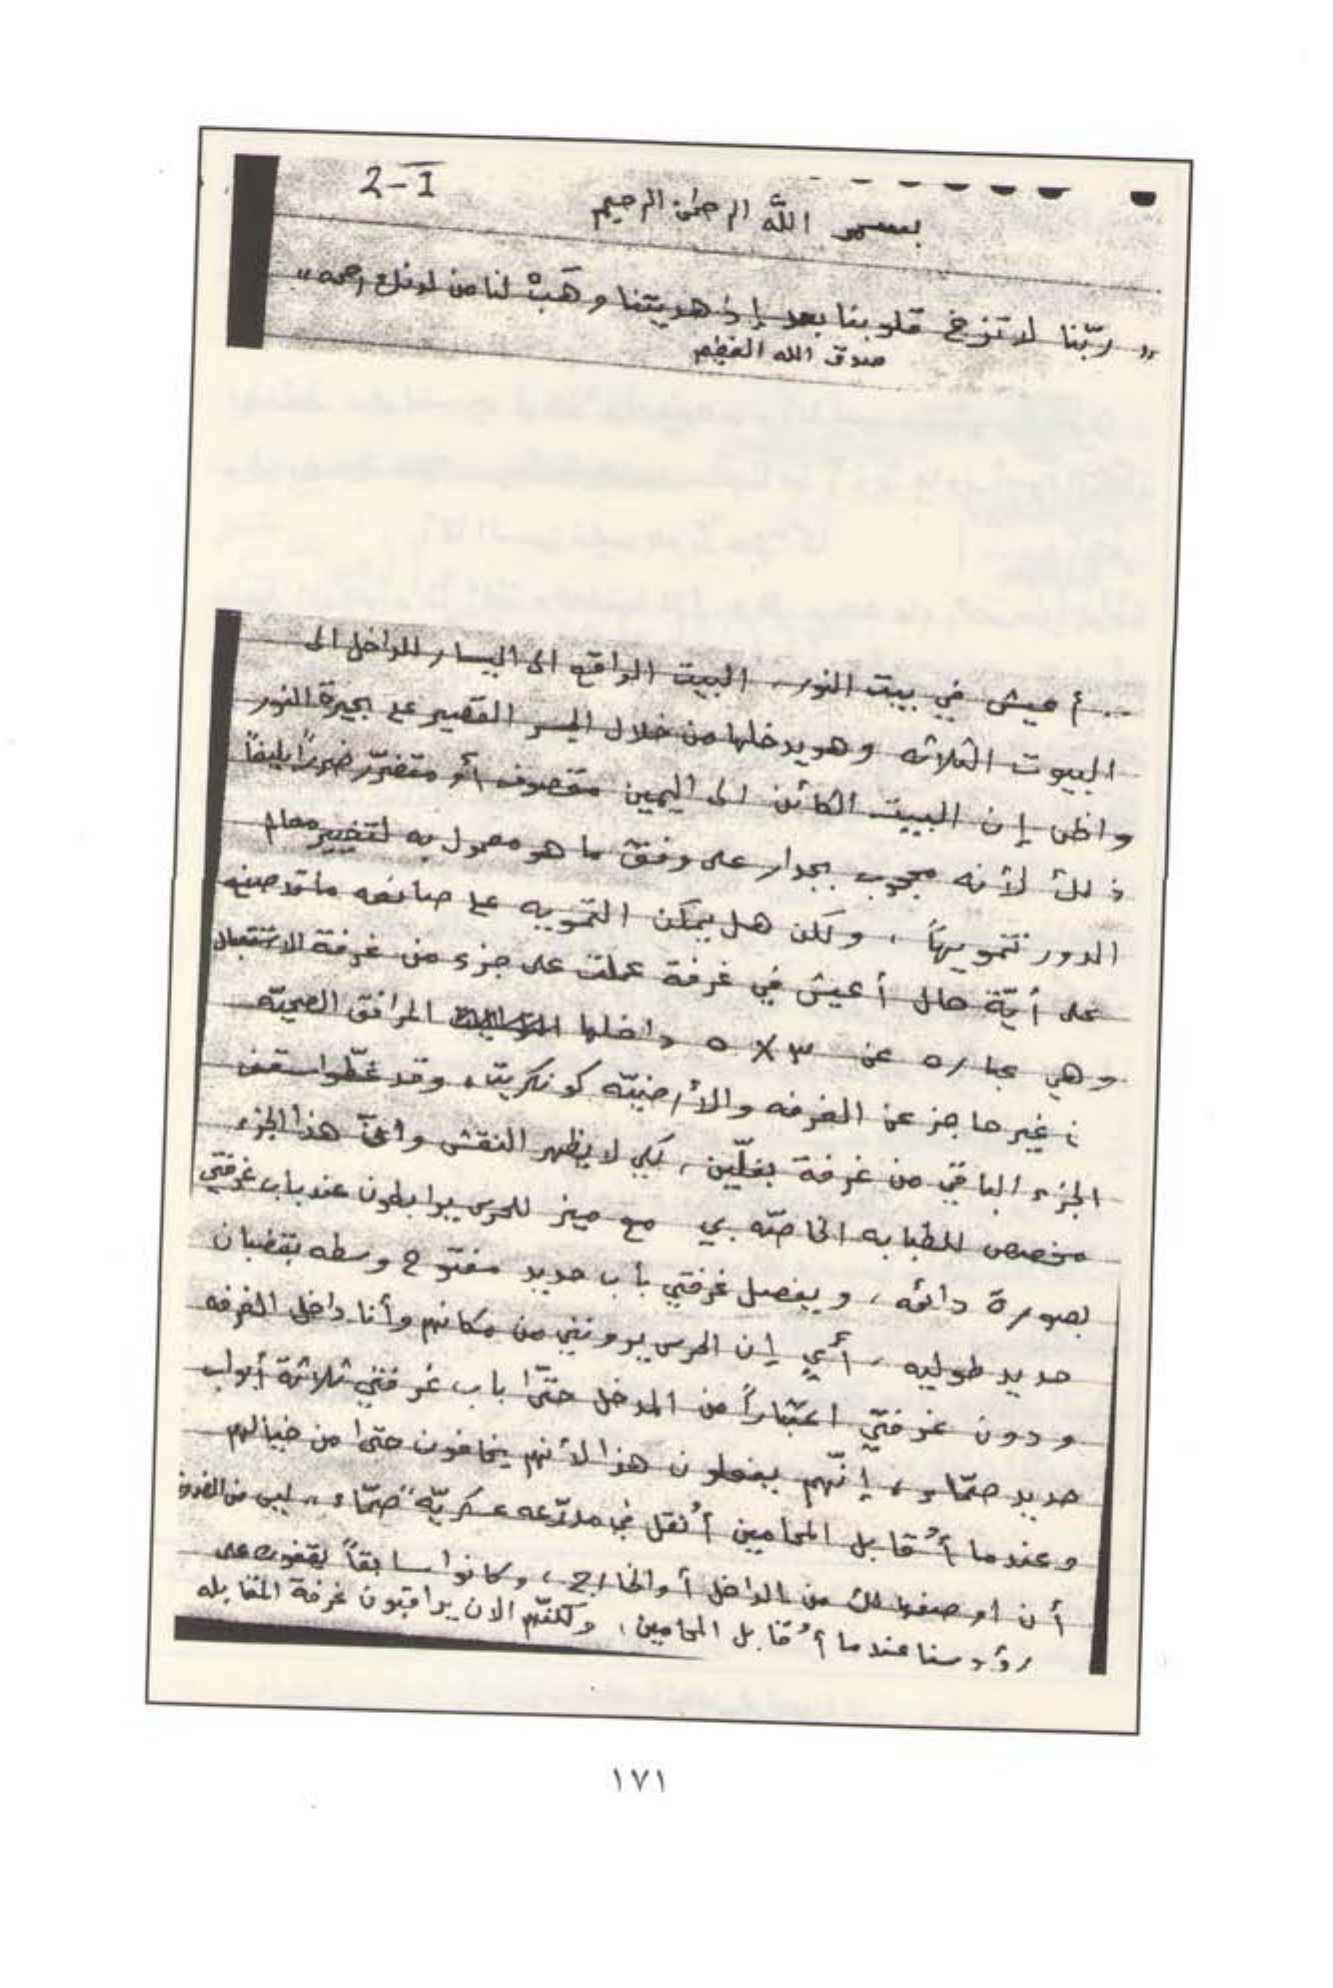 2-1
بسم الله الرحمن الرحيم
" ربّنا لا تزغ قلوبنا بعد إذ هديتنا وهَبْ لنا من لدنك رحمه "
صدق الله العظيم
.. أعيش في بيت النور، البيت الواقع الى اليسار للداخل الى
البيوت الثلاثه وهو يدخلها من خلال الجسر القصير على بحيرة النور
واظن إن البيت الكائن الى اليمين مقصوف أو متضرّر ضررًا بليغاً
ذلك لأنه محجوب بجدار على وفق ما هو معمول به لتغيير معالم
الدور تمويهاً ، ولكن هل يمكن التمويه على صانعه ما قد صنع
على أيّة حال أعيش في غرفة عملت على جزء من غرفة الاستقبال
وهي عباره عن ٣ X ٥ داخلها المرافق الصحيّه
غير حاجز عن الغرفه والأرضيّه كونكريت، وقد غطّوا سقف
الجزء الباقي من غرفة بفلّين، لكي لا يظهر النقش هذا الجزء
مخصص للطبابه الخاصّه بي مع ميز للحرس يرابطون عند باب غرفتي
بصورة دائمه ، ويفصل غرفتي باب حديد مفتوح وسطه بقضبان
حديد طوليه ، أي إن الحرس يرونني من مكانهم وأنا داخل الغرفه
ودون غرفتي اعتباراً من المدخل حتّى باب غرفتي ثلاثة أبواب
حديد صمّاء ، إنّهم يفعلون هذا لأنهم يخافون حتى من خيالهم
وعندما أُقابل المحامين أُنقل في مدرّعه عسكريّه "صمّاء" ليس من
أن اوصفها لك من الداخل أو الخارج ، وكانوا سابقاً يقفون على
رؤوسنا عندما أُقابل المحامين ، ولكنّهم الان يراقبون غرفة المقابله
١٧١